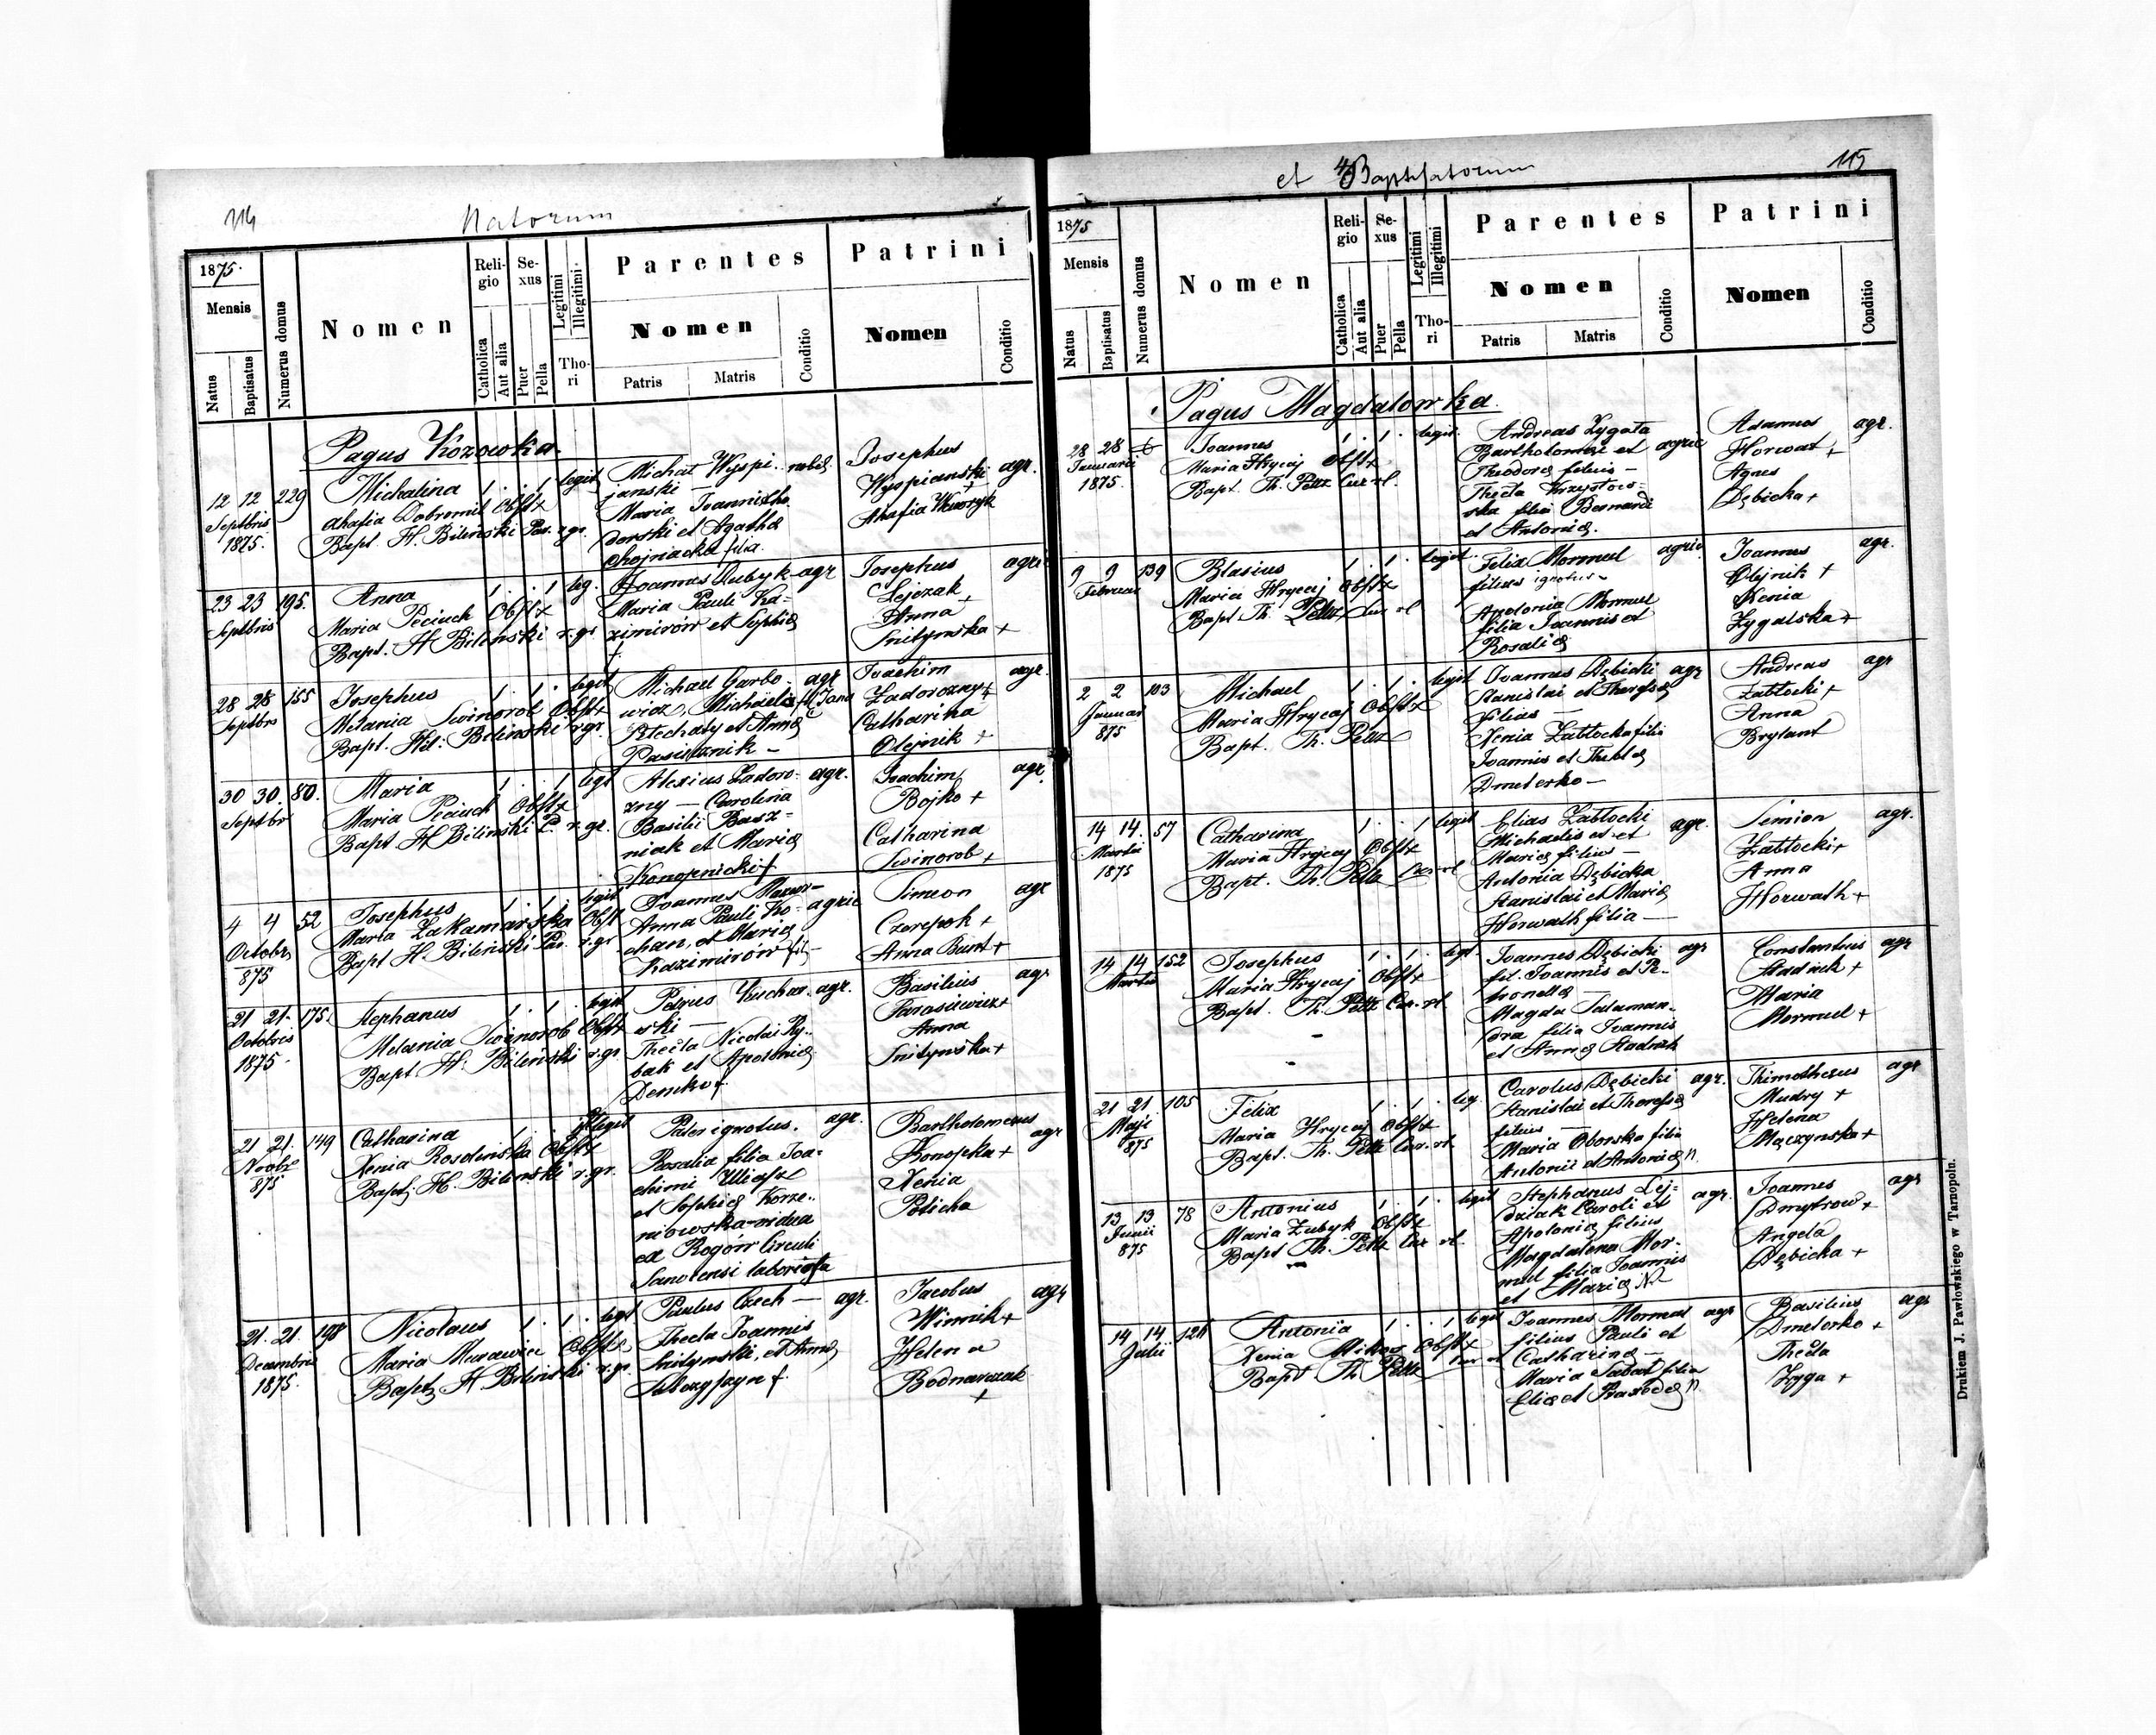 114
Natorum
1875.
Mensis
Natus
Baptisatus
Numerus domus
Nomen
Reli-
gio
Catholica
Aut alia
Se-
xus
Puer
Pella
Legitimi
Illegitimi
Tho-
ri
Parentes
Nomen
Patris
Matris
Conditio
Patrini
Nomen
Conditio
Pagus Kozowka
12 12 229
Septbris
1875.
Michalina
Ahafia Dobromil Obst+
Bapt. H. Bilinski Par. r. gr.
1 . . 1 legit
Michał Wyspi-
janski
Maria Joannis
dorski et Agatha
Chojnacka filia
nobil.
Josephus
Wyspianski
+
Ahafia
agr.
23 23 195.
Septbris
Anna
Maria Peciuch Obst+
Bapt. H Bilinski r. gr
1 . . 1 leg.
Joannes Kubyk
Maria Pauli Ka-
zimirów et Sophiæ
f.
agr
Josephus
Lejczak +
Anna
Snitynska +
agri
28 28 155
Septbris
Josephus
Melania Swinorob Obst+
Bapt. H. Bilinski r. gr.
1 . 1 . legit
Michael Garbo-
wicz, Michaelis
et Annæ
Pasicznik -
agr
Joachim
Zadorozny +
Catharina
Olejnik +
agr.
30 30. 80.
Septbr
Maria
Maria Peciuch Obst+
Bapt H Bilinski P. r. gr.
1 . . 1 legt
Alexius Zadoro-
zny — Carolina
Basilii Basz-
niak et Mariæ
Konopnicki f
agr.
Joachim
Bojko +
Catharina
Swinorob +
agr.
4 4 52
Octobr
875
Josephus
Maria Zakamarska Obst
Bapt H. Bilinski Par. r. gr
1 . 1 . legit
Joannes Mazur-
Anna Pauli Ko-
chan, et Mariæ
Kazimirów fil -
agric
Simeon
Czerepok +
Anna Bunt +
agr
21 21. 175.
Octobris
1875.
Stephanus
Melania Swinorob Obst+
Bapt. H. Bilinski r. gr.
1 . 1 . legit
Petrus Kuchar-
ski —
Thecla Nicolai Ry-
bak et Apoloniæ
Denko f.
agr.
Basilius
Tarasiewicz +
Anna
Snitynska +
agr
21 21. 149
Novbr
875
Catharina
Xenia Rosolinska Obst+
Bapt. H. Bilinski r. gr.
illegit
Pater ignotus.
Rosalia filia Joa-
chimi
et Sophiæ Korze-
niowska vidua
ex Rogów Circuli
Sanocensi laboriosa
agr.
Bartholomeus
Konopka +
Xenia
Policha
agr
21. 21. 198
Decembris
1875.
Nicolaus
Maria Murawiec Obst+
Bapt. H Bilinski r. gr.
1 . 1 . legt
Paulus Czech —
Thecla Joannis
Snitynski, et Annæ
f.
agr.
Jacobus
Winnik +
Helena
Bodnarczuk
+
agr
et Baptisatorum
115
1875
Mensis
Natus
Baptisatus
Numerus domus
Nomen
Reli-
gio
Catholica
Aut alia
Se-
xus
Puer
Pella
Legitimi
Illegitimi
Tho-
ri
Parentes
Nomen
Patris
Matris
Conditio
Patrini
Nomen
Conditio
Pagus Magdalowka.
28 28 6
Januarii
1875.
Joannes
Maria Hrycaj Obst+
Bapt. Th. Peltz Cur. rl.
1 . 1 . legit.
Andreas Zygata
Bartholomæi et
Theodoræ filius —
Thecla Krzystow-
ska filia Bernardi
et Antoniæ.
agric
Adamus
Horwat +
Agnes
Dębicka +
agr.
9 9 139
Februar
Blasius
Maria Hrycaj Obst+
Bapt Th. Peltz Cur rl
1 . 1 . legit
Felix Mormul
filius ignotus -
Apolonia Mormul
filia Joannis et
Rosaliæ
agric
Joannes
Olejnik +
Xenia
Zygalska +
agr.
2 2 103
Januar
875
Michael
Maria Hrycaj Obst+
Bapt. Th. Peltz
1 . 1 . legit
Joannes Dębicki
Stanislai et Theressæ
filius —
Xenia Zabłocka filia
Joannis et Theklæ
Dmeterko —
agr
Andreas
Zabłocki +
Anna
Brylant
agr
14 14. 57
Martii
1875
Catharina
Maria Hrycaj Obst+
Bapt. Th. Peltz Cur rl
1 . . 1 legit
Elias Zabłocki
Michaelis et
Mariæ filius —
Antonia Dębicka
Stanislai et Mariæ
Horwath filia —
agr.
Semion
Zabłocki +
Anna
Horwath +
agr.
14 14 152
Martii
Josephus
Maria Hrycaj Obst+
Bapt. Th. Peltz Cur. rl
1 . 1 . legt.
Joannes Dębicki
fil. Joannis et Pe-
tronellæ —
Magda Salaman-
dra filia Joannis
et Annæ Stadnik
agr
Constantius
Stadnik +
Maria
Mormul +
agr
21 21 105
Maji
875
Felix
Maria Hrycaj Obst+
Bapt. Th. Peltz Cur. rl.
1 . 1 . leg.
Carolus Dębicki
Stanislai et Theressæ
filius —
Maria Oborska filia
Antonii et Antoniæ n.
agr.
Thimotheus
Mudry +
Helena
Mączynska +
agr
13 13 78
Junii
875
Antonius
Maria Zubyk Obst+
Bapt Th. Peltz Cur rl.
1 . 1 . legit
Stephanus Lej-
dziak Caroli et
Apoloniæ filius
Magdalena Mor-
mul filia Joannis
et Mariæ N
agr.
Joannes
Dmytrow +
Angela
Dębicka +
agr
14 14 124
Julii
Antonia
Xenia Obst+
Bapt Th. Peltz Cur rl
1 . . 1 legit
Joannes Mormul
filius Pauli et
Catharinæ —
Maria Sabat filia
Eliæ et Praxedæ n
agr
Basilius
Dmeterko +
Thecla
Zyga +
agr
Drukiem J. Pawłowskiego w Tarnopolu.